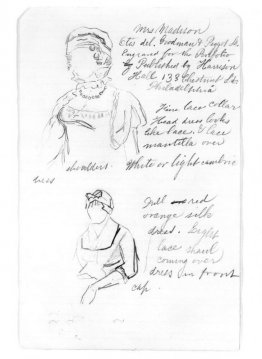 Mrs Madison
Otis del. Goodman & Piggot Sc.
Engraved for the Portfolio
by Published by Harrison
Hall 133 Chestnut St.
Philadelphia
Fine lace collar
Head dress looks
like lace. lace
mantilla over
shoulders. White or light cambric
dress
Full red
orange silk
dress. Light
lace shawl
coming over
dress in front
cap.